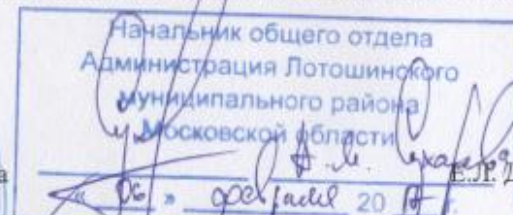 Начальник общего отдела
Администрация Лотошинского
муниципального района
Московской области
А. М.
а « 06 » февраля 20 г. Е.Л.